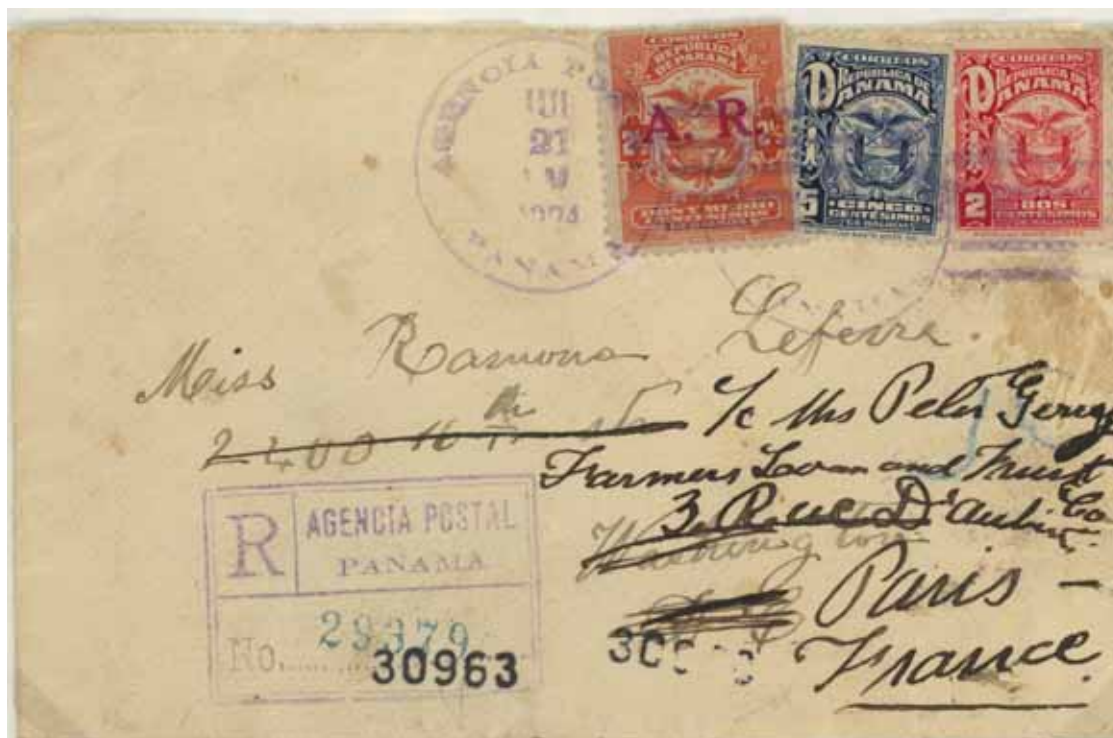 AGENCIA PO
21
1924
PANAMA
CORREOS
REPUBLICA
DE PANAMA
A. R.
CORREOS
REPUBLICA DE
PANAMA
5
CINCO
CENTESIMOS
CORREOS
REPUBLICA DE
PANAMA
2
DOS
CENTESIMOS
Miss Ramona Lefevre.
2400 16th
c/o Mrs Peter
Farmers Loan and Trust Co.
3 Rue D'
Washington
Paris -
France.
R
AGENCIA POSTAL
PANAMA
No. 29379
30963